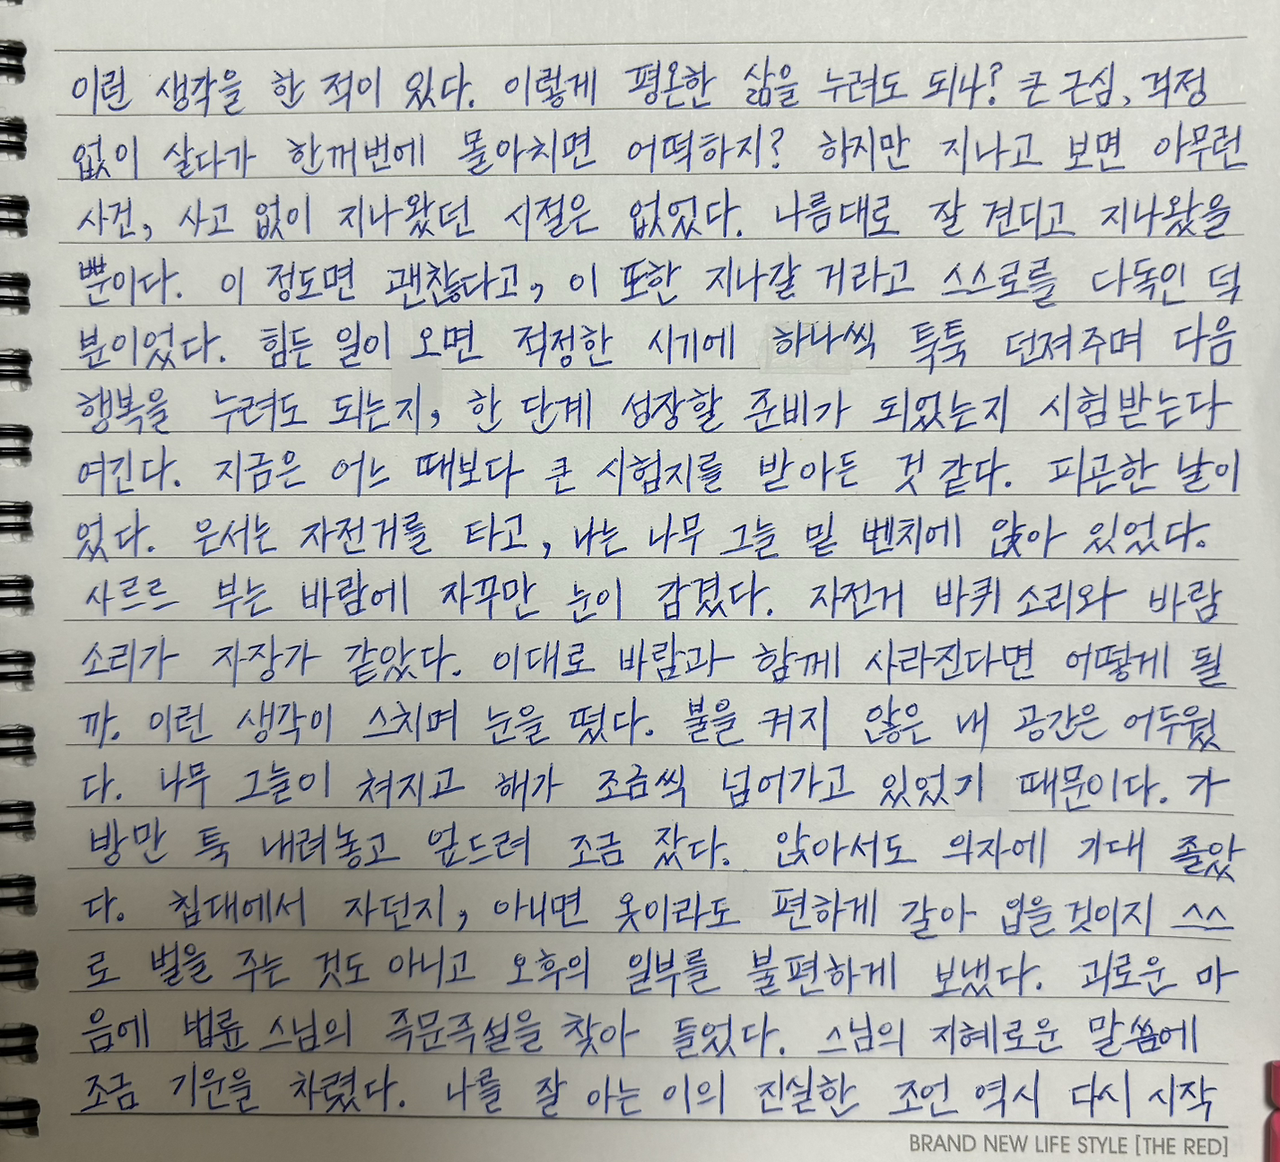 이런 생각을 한 적이 있다. 이렇게 평온한 삶을 누려도 되나? 큰 근심, 걱정
없이 살다가 한꺼번에 몰아치면 어떡하지? 하지만 지나고 보면 아무런
사건, 사고 없이 지나왔던 시절은 없었다. 나름대로 잘 견디고 지나왔을
뿐이다. 이 정도면 괜찮다고, 이 또한 지나갈 거라고 스스로를 다독인 덕
분이었다. 힘든 일이 오면 적정한 시기에 하나씩 툭툭 던져주며 다음
행복을 누려도 되는지, 한 단계 성장할 준비가 되었는지 시험받는다
여긴다. 지금은 어느 때보다 큰 시험지를 받아든 것 같다. 피곤한 날이
었다. 은서는 자전거를 타고, 나는 나무 그늘 밑 벤치에 앉아 있었다.
사르르 부는 바람에 자꾸만 눈이 감겼다. 자전거 바퀴 소리와 바람
소리가 자장가 같았다. 이대로 바람과 함께 사라진다면 어떻게 될
까. 이런 생각이 스치며 눈을 떴다. 불을 켜지 않은 내 공간은 어두웠
다. 나무 그늘이 쳐지고 해가 조금씩 넘어가고 있었기 때문이다. 가
방만 툭 내려놓고 엎드려 조금 잤다. 앉아서도 의자에 기대 졸았
다. 침대에서 자던지, 아니면 옷이라도 편하게 갈아 입을것이지 스스
로 벌을 주는 것도 아니고 오후의 일부를 불편하게 보냈다. 괴로운 마
음에 법륜 스님의 즉문즉설을 찾아 들었다. 스님의 지혜로운 말씀에
조금 기운을 차렸다. 나를 잘 아는 이의 진실한 조언 역시 다시 시작
BRAND NEW LIFE STYLE [THE RED]